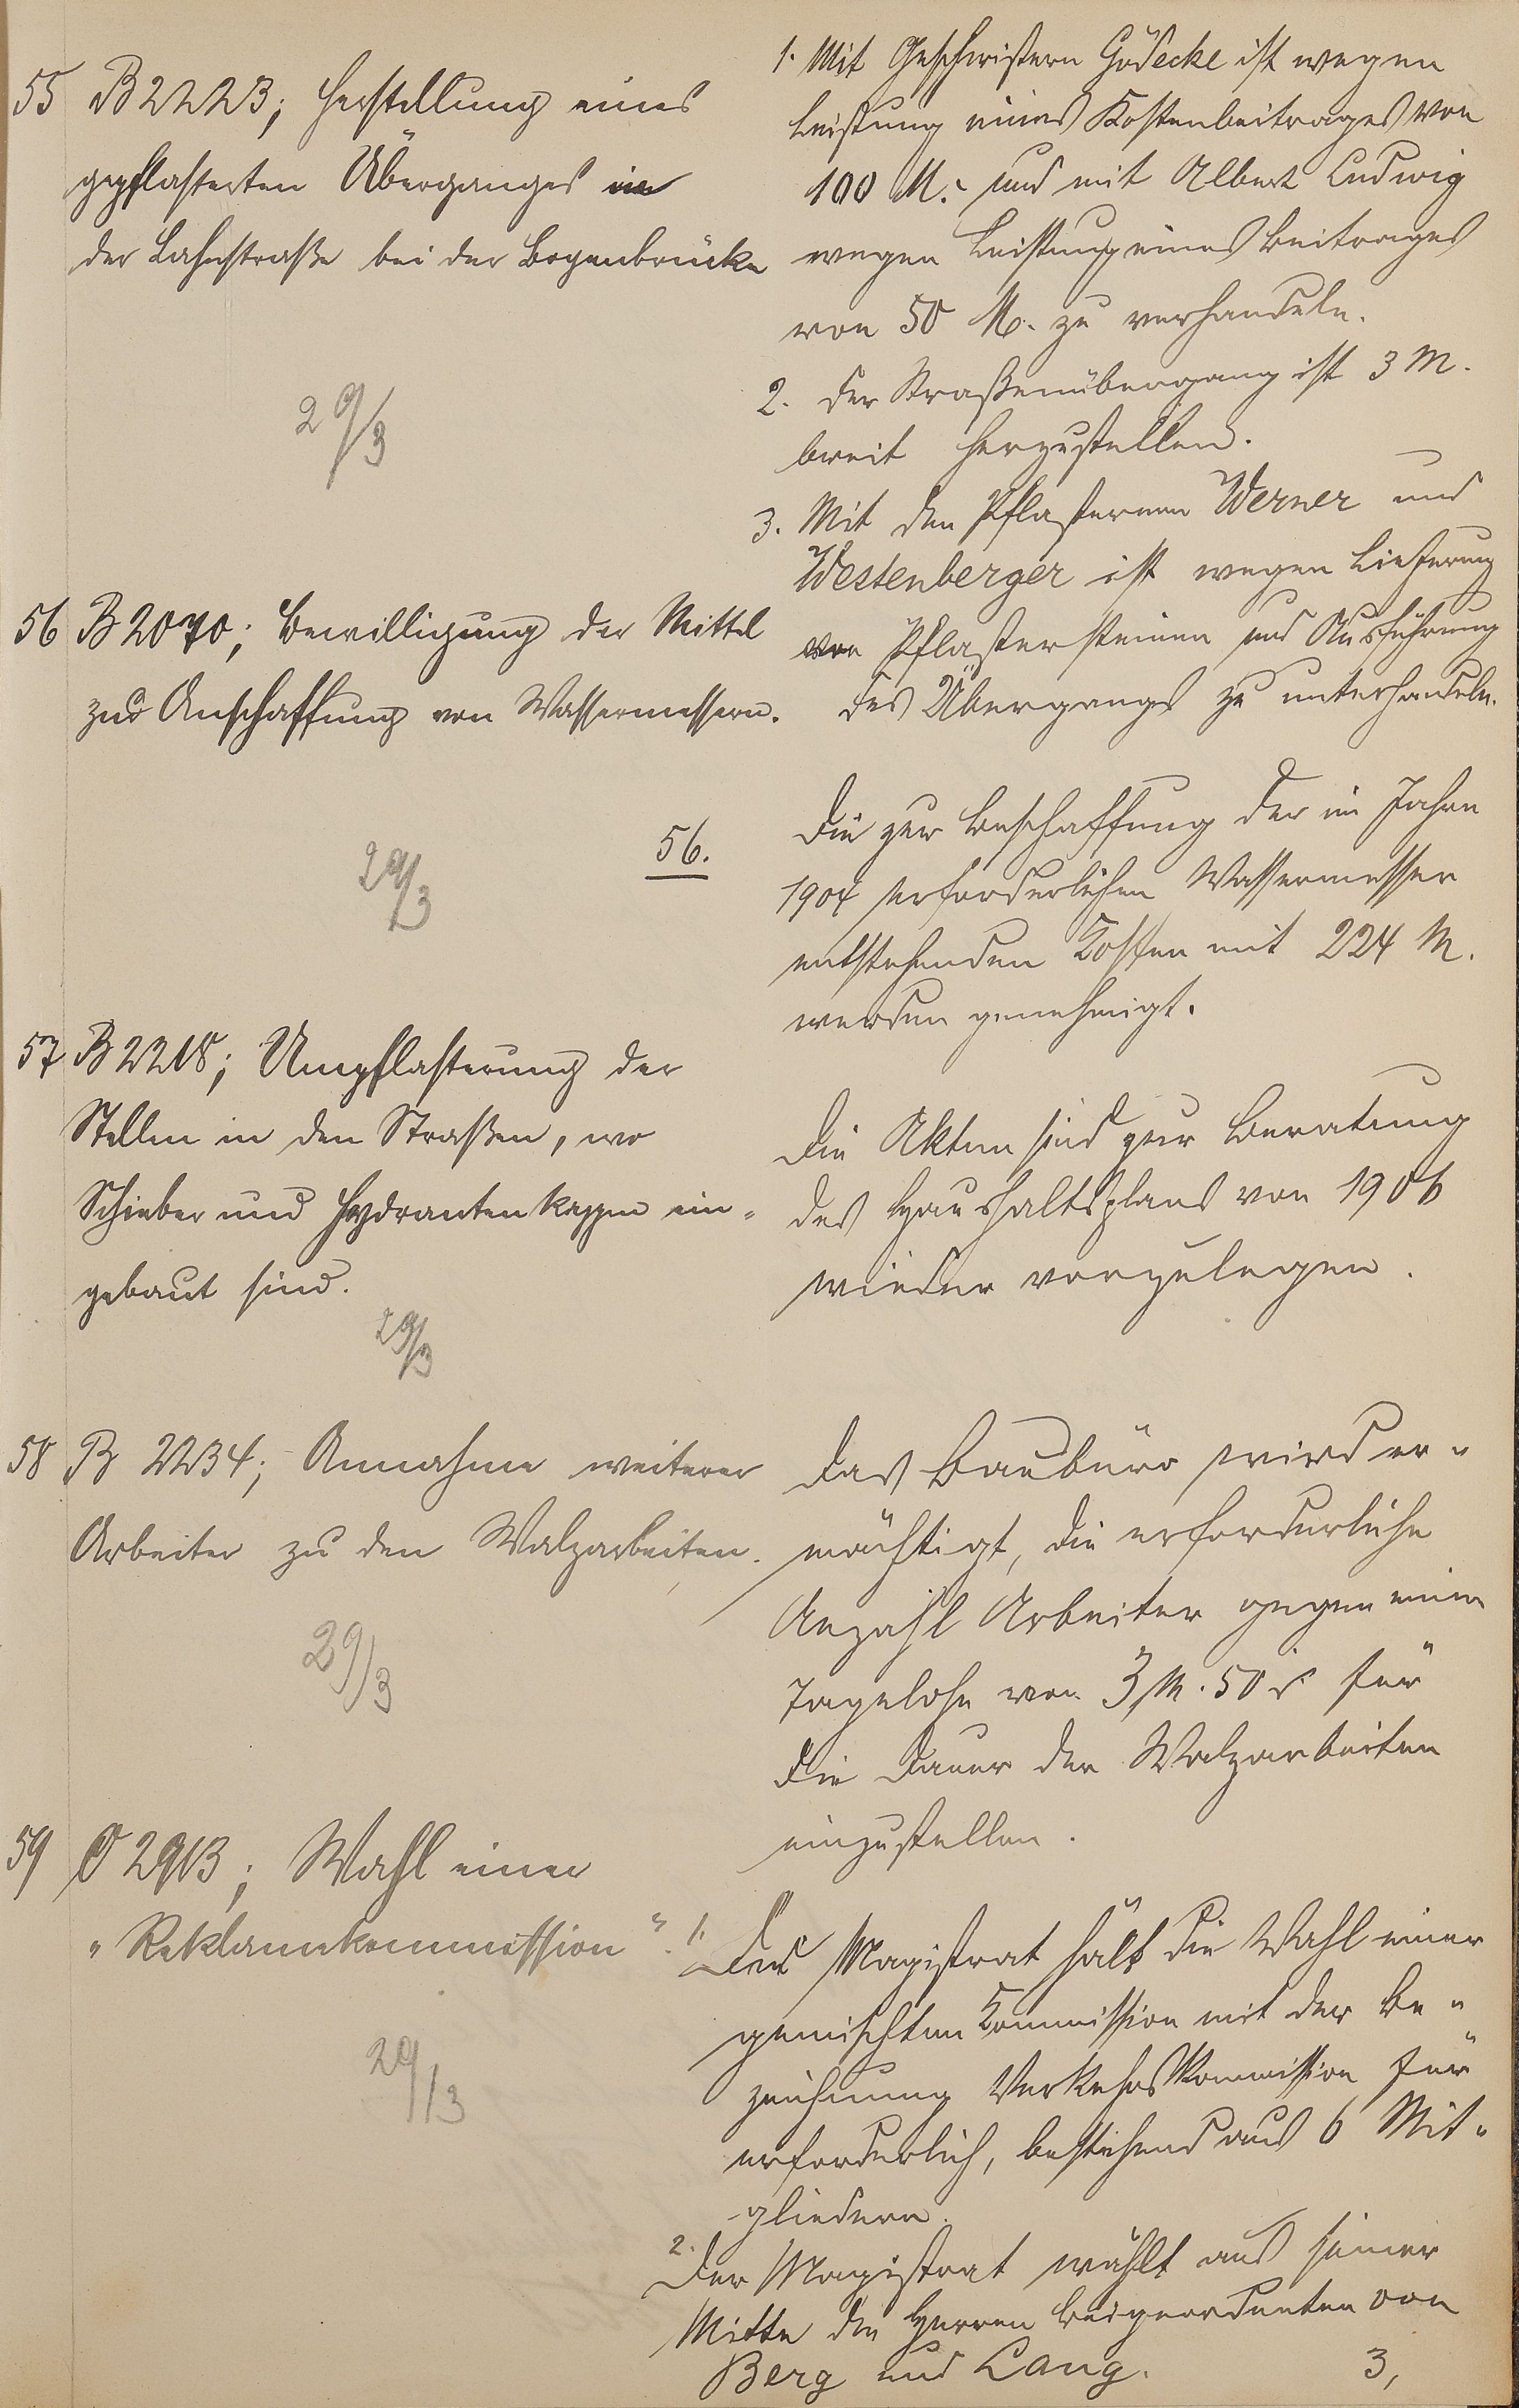 55 B 2223; Herstellung eines
gepflasterten Überganges in
der Bahnstraße bei der Bogenbrücke
29/3
1. Mit Geschwistern Gödecke ist wegen
Leistung eines Kostenbeitrages von
100 M. und mit Albert Ludwig
wegen Leistung eines Beitrages
von 50 M. zu verhandeln.
2. Der Straßenübergang ist 3 M.
breit herzustellen.
3. Mit den Pflasterern Werner und
Westenberger ist wegen Lieferung
von Pflastersteinen und Ausführung
des Übergangs zu unterhandeln.
56 B 2070; Bewilligung der Mittel
zur Anschaffung von Wassermessern.
29/3
56.
Die zur Beschaffung der im Jahre
1904 erforderlichen Wassermesser
entstehenden Kosten mit 224 M.
werden genehmigt.
57 B 2218; Umpflasterung der
Stellen in den Straßen, wo
Schieber und Hydrantenkappen ein-
gebaut sind.
29/3
Die Akten sind zur Beratung
des Haushaltsplans von 1906
wieder vorzulegen.
58 B 2234; Annahme weiterer
Arbeiter zu den Walzarbeiten.
29/3
Das Baubüro wird er-
mächtigt, die erforderliche
Anzahl Arbeiter gegen einen
Tagelohn von 3 M. 50 für
die Dauer der Walzarbeiten
einzustellen.
59 2913; Wahl einer
"Reklamekommission".
29/3
1. Der Magistrat hält die Wahl einer
gemischten Kommission mit der Be-
zeichnung Verkehrskommission für
erforderlich, bestehend aus 6 Mit-
gliedern.
2. Der Magistrat wählt aus seiner
Mitte die Herren Beigeordneten von
Berg und Lang.
3,